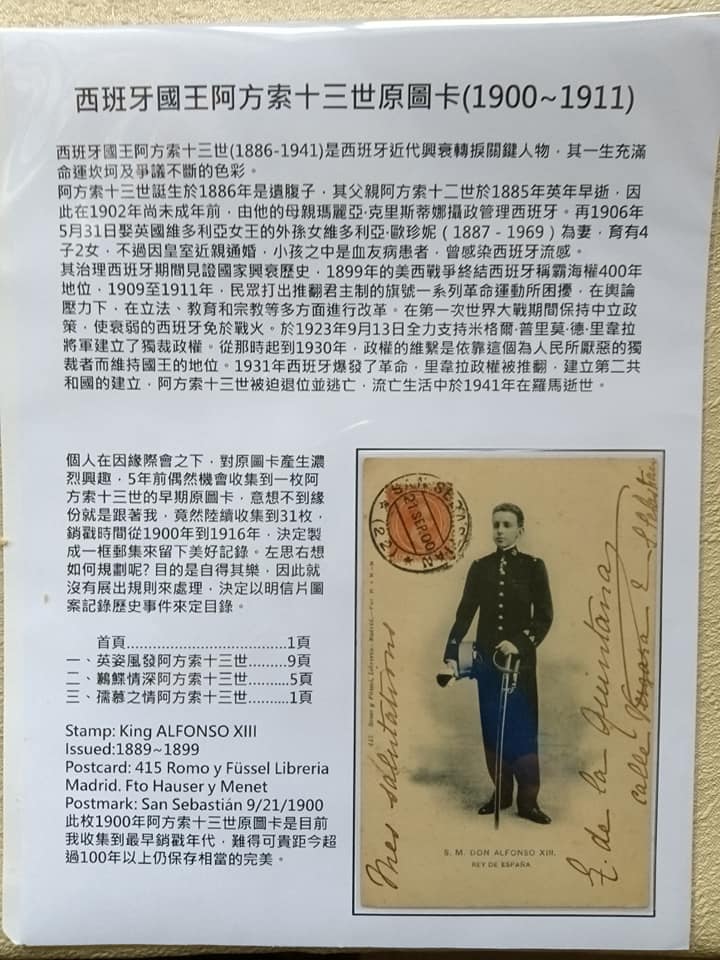 西班牙國王阿方索十三世原圖卡(1900~1911)
西班牙國王阿方索十三世(1886-1941)是西班牙近代興衰轉捩關鍵人物，其一生充滿
命運坎坷及爭議不斷的色彩。
阿方索十三世誕生於1886年是遺腹子，其父親阿方索十二世於1885年英年早逝，因
此在1902年尚未成年前，由他的母親瑪麗亞·克里斯蒂娜攝政管理西班牙。再1906年
5月31日娶英國維多利亞女王的外孫女維多利亞·歐珍妮（1887 - 1969）為妻，育有4
子2女，不過因皇室近親通婚，小孩之中是血友病患者，曾感染西班牙流感。
其治理西班牙期間見證國家興衰歷史，1899年的美西戰爭終結西班牙稱霸海權400年
地位，1909至1911年，民眾打出推翻君主制的旗號一系列革命運動所困擾，在輿論
壓力下，在立法、教育和宗教等多方面進行改革。在第一次世界大戰期間保持中立政
策，使衰弱的西班牙免於戰火。於1923年9月13日全力支持米格爾·普里莫·德·里韋拉
將軍建立了獨裁政權。從那時起到1930年，政權的維繫是依靠這個為人民所厭惡的獨
裁者而維持國王的地位。1931年西班牙爆發了革命，里韋拉政權被推翻，建立第二共
和國的建立，阿方索十三世被迫退位並逃亡，流亡生活中於1941年在羅馬逝世。
個人在因緣際會之下，對原圖卡產生濃
烈興趣，5年前偶然機會收集到一枚阿
方索十三世的早期原圖卡，意想不到緣
份就是跟著我，竟然陸續收集到31枚，
銷戳時間從1900年到1916年，決定製
成一框郵集來留下美好記錄。左思右想
如何規劃呢? 目的是自得其樂，因此就
沒有展出規則來處理，決定以明信片圖
案記錄歷史事件來定目錄。
首頁....................................1頁
一、英姿風發阿方索十三世.........9頁
二、鶼鰈情深阿方索十三世.........5頁
三、孺慕之情阿方索十三世.........1頁
Stamp: King ALFONSO XIII
Issued:1889~1899
Postcard: 415 Romo y Füssel Libreria
Madrid. Fto Hauser y Menet
Postmark: San Sebastián 9/21/1900
此枚1900年阿方索十三世原圖卡是目前
我收集到最早銷戳年代，難得可貴距今超
過100年以上仍保存相當的完美。
SAN SEBASTIAN
21 SEP 00
(22)
Mes salutations
E. de la Quintana
calle
S. M. DON ALFONSO XIII.
REY DE ESPAÑA